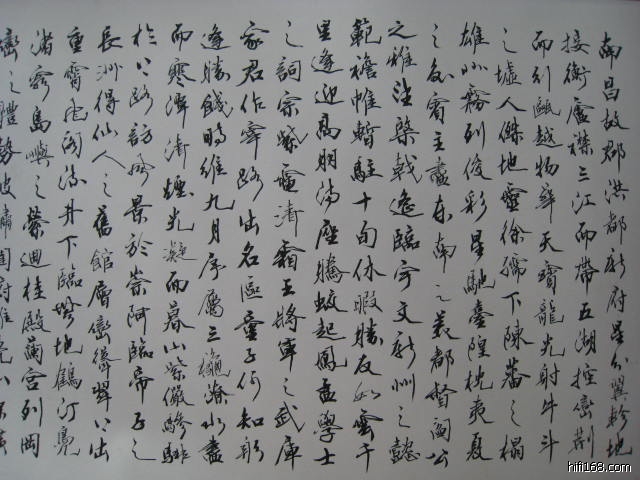 南昌故郡洪都新府星分翼軫地
接衡廬襟三江而帶五湖控蠻荆
而引甌越物華天寶龍光射牛斗
之墟人傑地靈徐孺下陳蕃之榻
雄州霧列俊彩星馳臺隍枕夷夏
之交賓主盡東南之美都督閻公
之雅望棨戟遙臨宇文新州之懿
範襜帷暫駐十旬休暇勝友如雲千
里逢迎高朋滿座騰蛟起鳳孟學士
之詞宗紫電清霜王將軍之武庫
家君作宰路出名區童子何知躬
逢勝餞時維九月序屬三穐潦水盡
而寒潭清煙光凝而暮山紫儼驂騑
於上路訪風景於崇阿臨帝子之
長洲得仙人之舊館層巒聳翠上出
重霄飛閣流丹下臨無地鶴汀鳧
渚窮島嶼之縈迴桂殿蘭宮列岡
巒之體勢披繡闥俯雕甍
hifi168.com